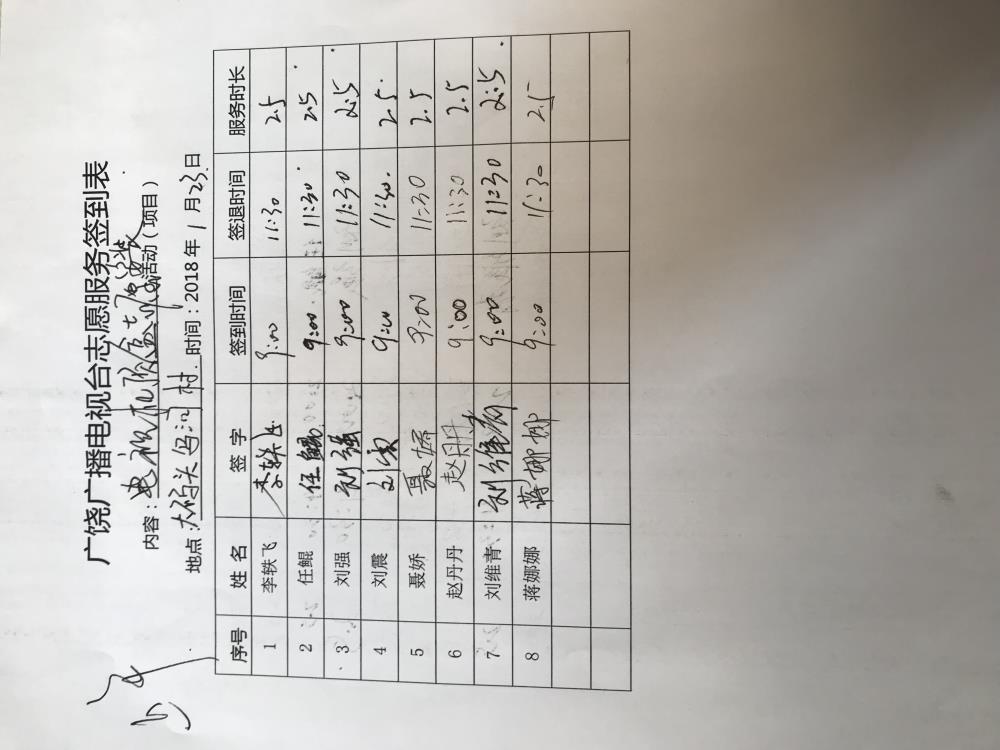 广饶广播电视台志愿服务签到表
内容：电视机顶盒 活动（项目）
地点：大码头 村 时间：2018年1月23日
序号 姓名 签字 签到时间 签退时间 服务时长
1 李轶飞 李轶飞 9:00 11:30 2.5
2 任鲲 任鲲 9:00 11:30 2.5
3 刘强 刘强 9:00 11:30 2.5
4 刘震 刘震 9:00 11:30 2.5
5 聂娇 聂娇 9:00 11:30 2.5
6 赵丹丹 赵丹丹 9:00 11:30 2.5
7 刘维青 刘维青 9:00 11:30 2.5
8 蒋娜娜 蒋娜娜 9:00 11:30 2.5